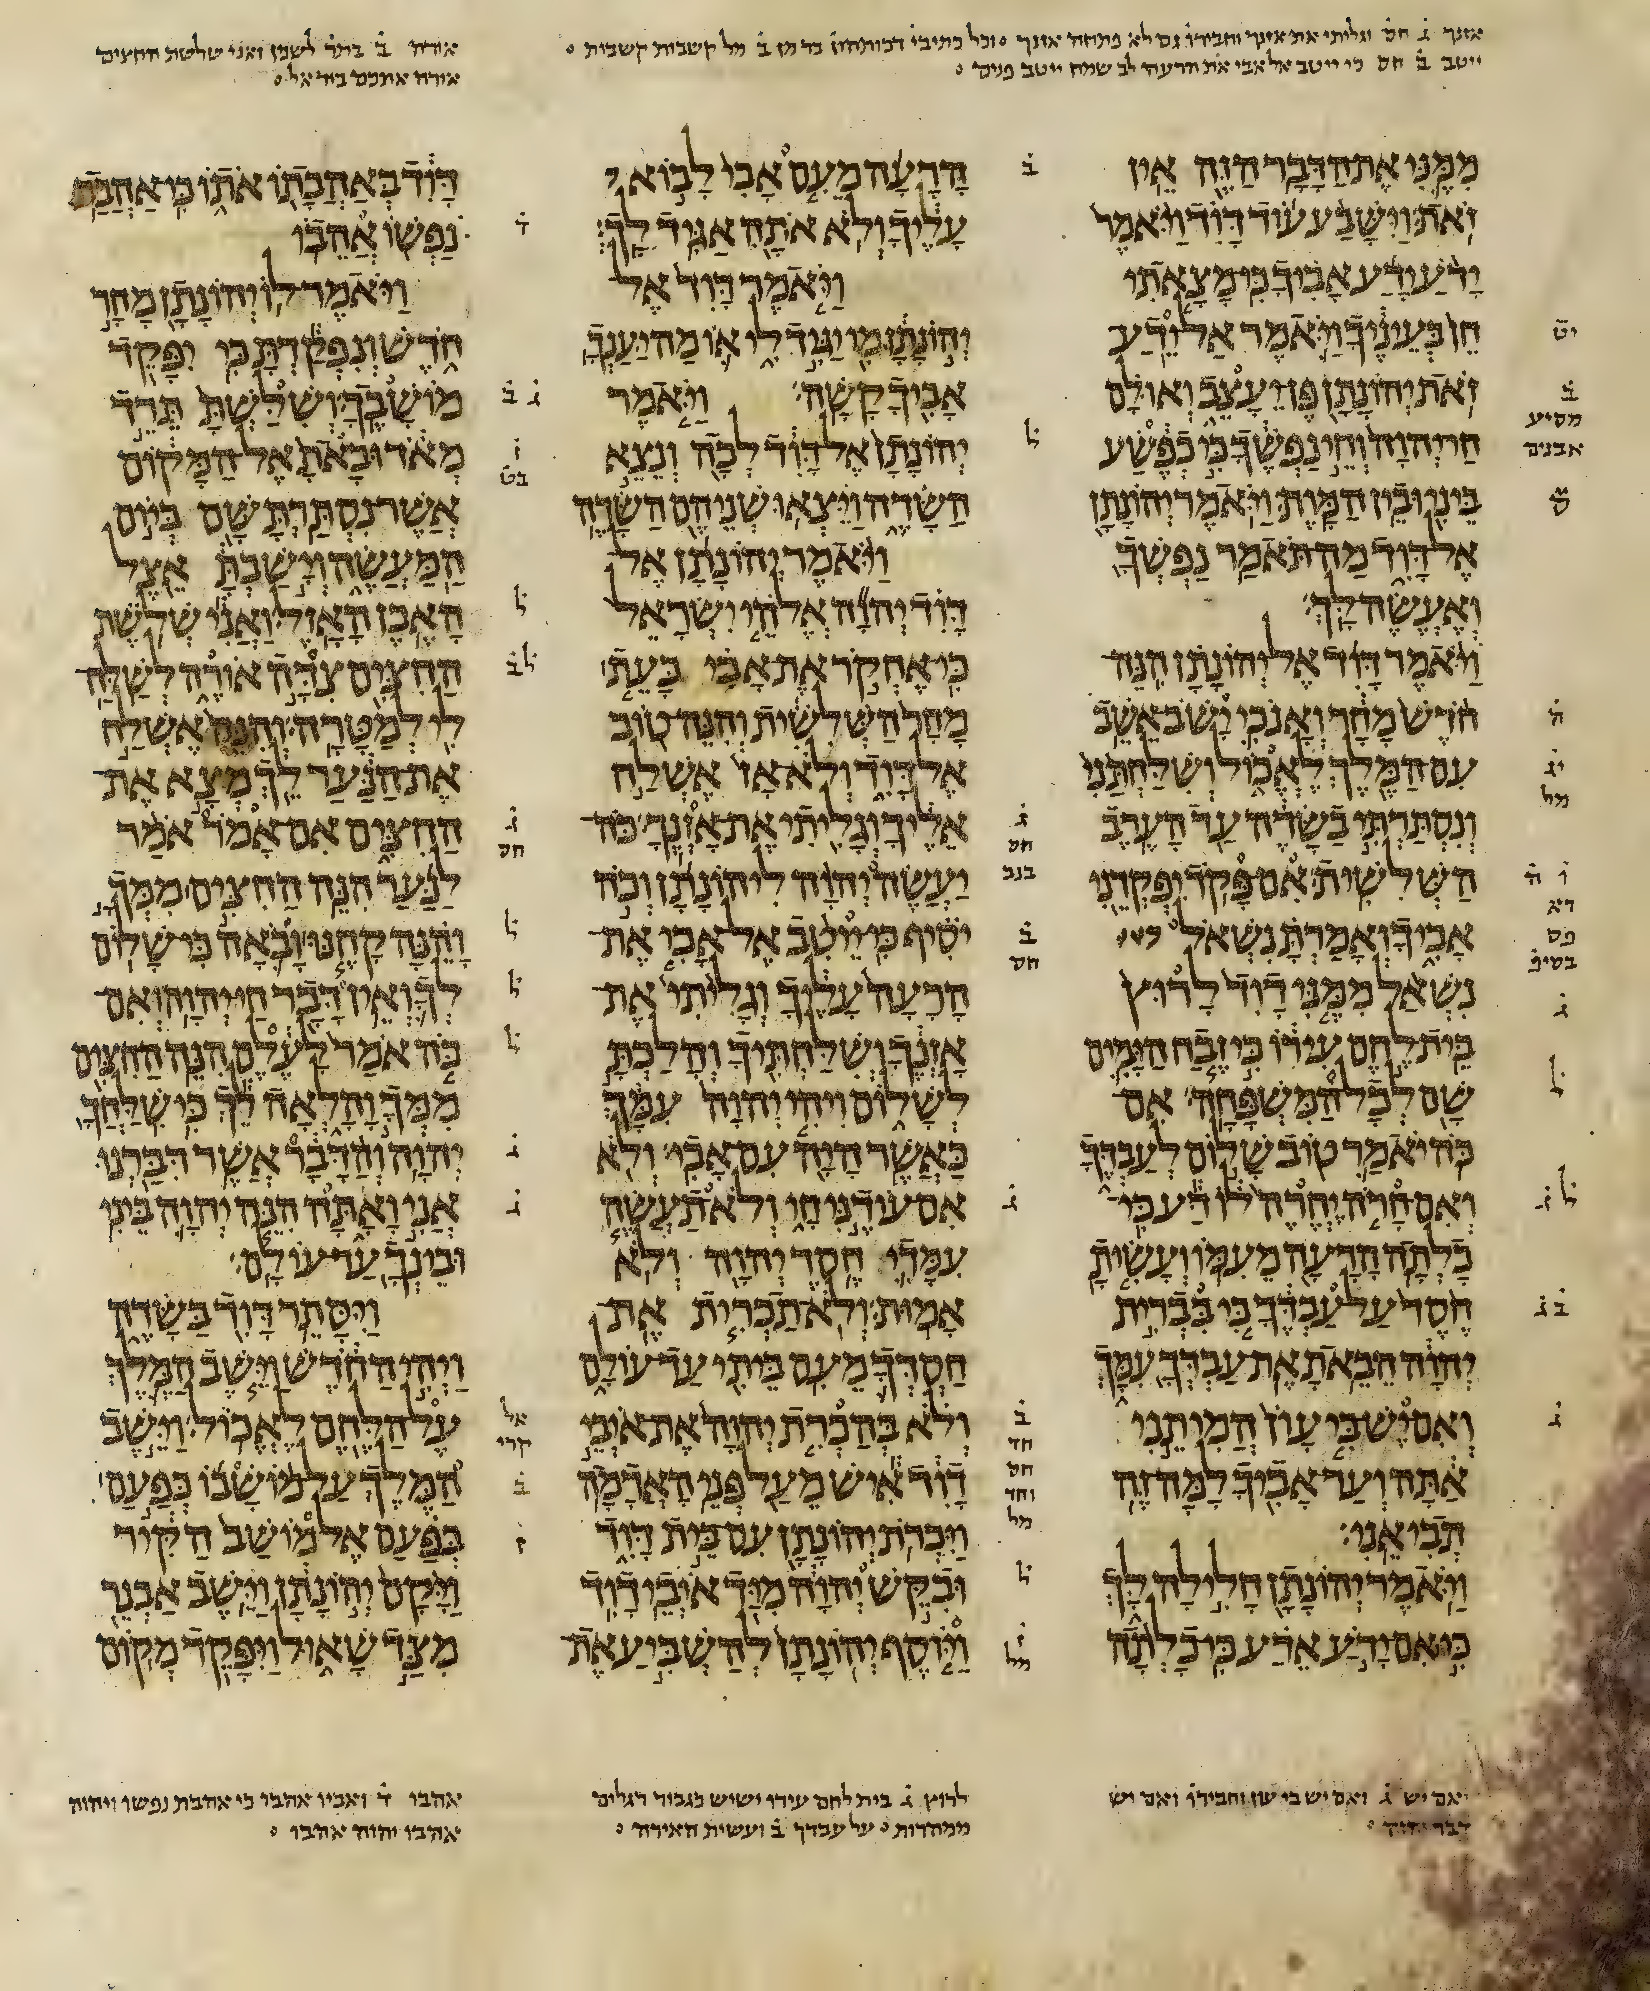 אזנך ג חס וגליתי את אזנך וחבירו גם לא פתחה אזנך ○ וכל כתיבי דכותהון בר מן ב מל קשבות קשבית ○
ייטב ב חס כי ייטב אל אבי את הרעה לב שמח ייטב פנים ○
אורה ב בתר לשנן ואני שלשת החצים
אורה אתכם ביד אל ○
ממני את הדבר הזה אין
זאת וישבע עוד דוד ויאמר
ידע ידע אביך כי מצאתי
חן בעיניך ויאמר אל ידע
זאת יהונתן פן יעצב ואולם
חי יהוה וחי נפשך כי כפשע
ביני ובין המות ויאמר יהונתן
אל דוד מה תאמר נפשך
ואעשה לך
ויאמר דוד אל יהונתן הנה
חדש מחר ואנכי ישב אשב
עם המלך לאכול ושלחתני
ונסתרתי בשדה עד הערב
השלשית אם פקד יפקדני
אביך ואמרת נשאל
נשאל ממני דוד לרוץ
בית לחם עירו כי זבח הימים
שם לכל המשפחה אם
כה יאמר טוב שלום לעבדך
ואם חרה יחרה לו דע כי
כלתה הרעה מעמו ועשית
חסד על עבדך כי בברית
יהוה הבאת את עבדך עמך
ואם יש בי עון המיתני
אתה ועד אביך למה זה
תביאני
ויאמר יהונתן חלילה לך
כי אם ידע אדע כי כלתה
יט
ב
מסיע
אבנים
ה
יג
מל
ו ה
דא
פס
בסיפ
ג
ל
ל ג
ב ג
ג
הרעה מעם אבי לבוא
עליך ולא אתה אגיד לך
ויאמר דוד אל
יהונתן מי יגיד לי או מה יענך
אביך קשה ויאמר
יהונתן אל דוד לכה ונצא
השדה ויצאו שניהם השדה
ויאמר יהונתן אל
דוד יהוה אלהי ישראל
כי אחקר את אבי כעת
מחר השלשית והנה טוב
אל דוד ולא אז אשלח
אליך וגליתי את אזנך כה
יעשה יהוה ליהונתן וכה
יסיף כי ייטב אל אבי את
הרעה עליך וגליתי את
אזנך ושלחתיך והלכת
לשלום ויהי יהוה עמך
כאשר היה עם אבי ולא
אם עודני חי ולא תעשה
עמדי חסד יהוה ולא
אמות ולא תכרית את
חסדך מעם ביתי עד עולם
ולא בהכרת יהוה את איבי
דוד איש מעל פני האדמה
ויכרת יהונתן עם בית דוד
ובקש יהוה מיד איבי דוד
ויוסף יהונתן להשביע את
ב
ל
ג
חס
בנב
ב
חס
ג
ב
חד
חס
וחד
מל
ל
ז
מל
דוד באהבתו אתו כי אהבת
נפשו אהבו
ויאמר לו יהונתן מחר
חדש ונפקדת כי יפקד
מושבך ושלשת תרד
מאד ובאת אל המקום
אשר נסתרת שם ביום
המעשה וישבת אצל
האבן האזל ואני שלשת
החצים צדה אורה לשלח
לי למטרה והנה אשלח
את הנער לך מצא את
החצים אם אמר אמר
לנער הנה החצים ממך
והנה קחנו ובאה כי שלום
לך ואין דבר חי יהוה ואם
כה אמר לעלם הנה החצים
ממך והלאה לך כי שלחך
יהוה והדבר אשר דברנו
אני ואתה הנה יהוה ביני
ובינך עד עולם
ויסתר דוד בשדה
ויהי החדש וישב המלך
על הלחם לאכול וישב
המלך על מושבו כפעם
בפעם אל מושב הקיר
ויקם יהונתן וישב אבנר
מצד שאול ויפקד מקום
ד
ג ב
ו
בט
ל
ל ב
ג
חס
ל
ל
ל
ג
ג
אל
קרי
ב
ז
ואם יש ג ואם יש בי עון וחבירו ואם יש
דבר
לרוץ ג בית לחם עירו ישיש כגבור רגלים
ממהרות ○ על עבדך ב ועשית האירה ○
אהבו ד ואביו אהבו כי אהבת נפשו ויהוה
אהבו יהוה אהבו ○